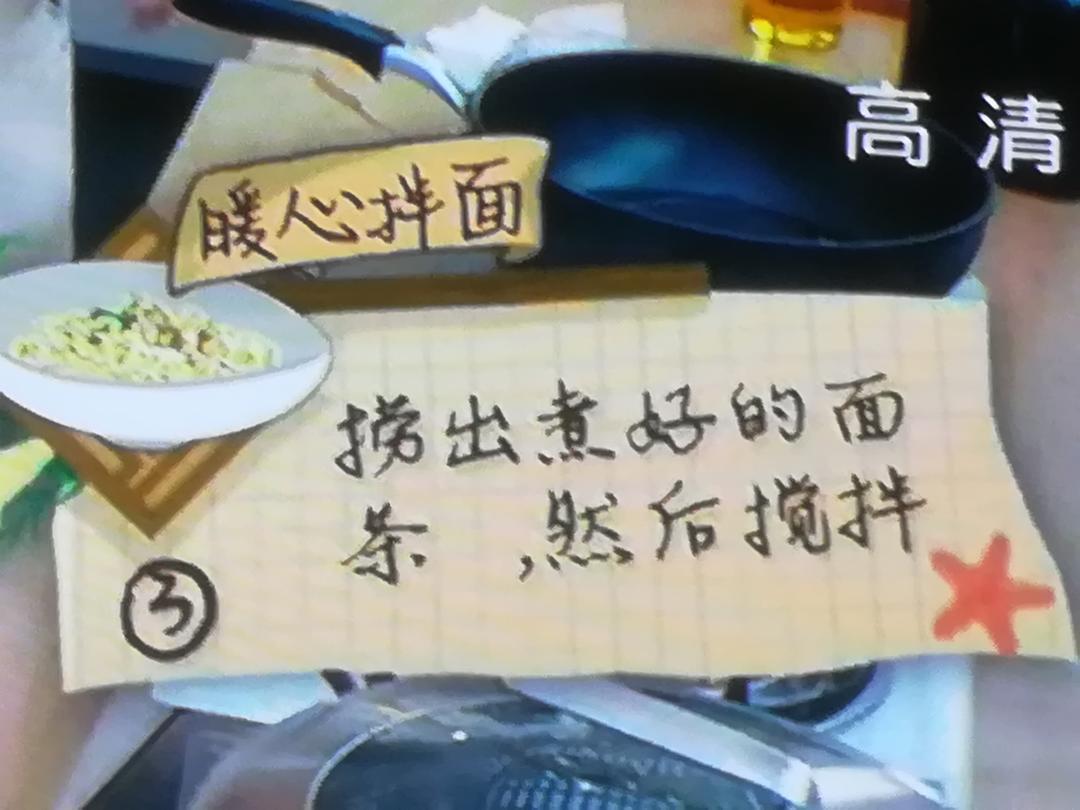 高清
暖心拌面
捞出煮好的面
条，然后搅拌
③